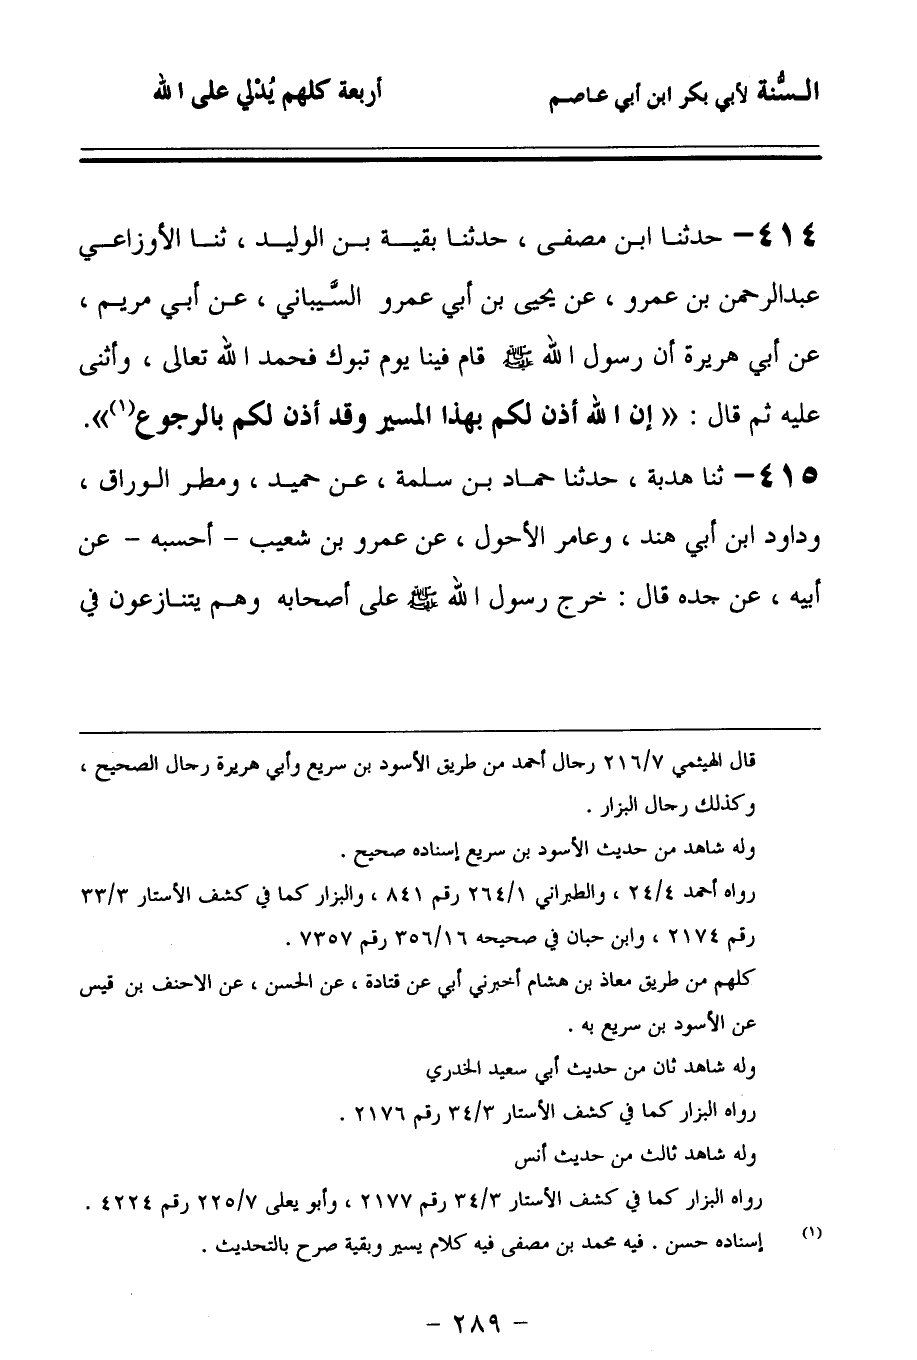 السُّنة لأبي بكر ابن أبي عاصم أربعة كلهم يُدْلي على الله
٤١٤– حدثنا ابن مصفى ، حدثنا بقية بن الوليد ، ثنا الأوزاعي
عبدالرحمن بن عمرو ، عن يحيى بن أبي عمرو السَّيباني ، عن أبي مريم ،
عن أبي هريرة أن رسول الله ﷺ قام فينا يوم تبوك فحمد الله تعالى ، وأثنى
عليه ثم قال : « إن الله أذن لكم بهذا المسير وقد أذن لكم بالرجوع(١)».
٤١٥– ثنا هدبة ، حدثنا حماد بن سلمة ، عن حميد ، ومطر الوراق ،
وداود ابن أبي هند ، وعامر الأحول ، عن عمرو بن شعيب – أحسبه – عن
أبيه ، عن جده قال : خرج رسول الله ﷺ على أصحابه وهم يتنازعون في
قال الهيثمي ٢١٦/٧ رحال أحمد من طريق الأسود بن سريع وأبي هريرة رحال الصحيح ،
وكذلك رحال البزار .
وله شاهد من حديث الأسود بن سريع إسناده صحيح .
رواه أحمد ٢٤/٤ ، والطبراني ٢٦٤/١ رقم ٨٤١ ، والبزار كما في كشف الأستار ٣٣/٣
رقم ٢١٧٤ ، وابن حبان في صحيحه ٣٥٦/١٦ رقم ٧٣٥٧ .
كلهم من طريق معاذ بن هشام أخبرني أبي عن قتادة ، عن الحسن ، عن الاحنف بن قيس
عن الأسود بن سريع به .
وله شاهد ثان من حديث أبي سعيد الخدري
رواه البزار كما في كشف الأستار ٣٤/٣ رقم ٢١٧٦ .
وله شاهد ثالث من حديث أنس
رواه البزار كما في كشف الأستار ٣٤/٣ رقم ٢١٧٧ ، وأبو يعلى ٢٢٥/٧ رقم ٤٢٢٤ .
(١) إسناده حسن . فيه محمد بن مصفى فيه كلام يسير وبقية صرح بالتحديث .
– ٢٨٩ –